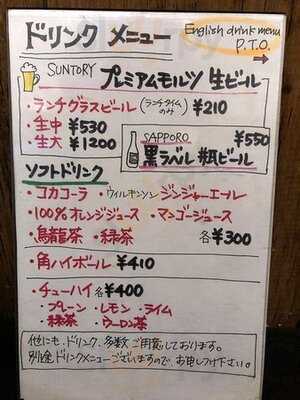 ドリンク メニュー
English drink menu
P.T.O. →
SUNTORY プレミアムモルツ 生ビール
・ランチグラスビール (ランチタイムのみ) ¥210
・生中 ¥530
・生大 ¥1200
SAPPORO ¥550
黒ラベル 瓶ビール
ソフトドリンク
・コカコーラ ・ウィルキンソン ジンジャーエール
・100%オレンジジュース ・マンゴージュース
・烏龍茶 ・緑茶 各¥300
・角ハイボール ¥410
・チューハイ 各¥400
・プレーン ・レモン ・ライム
・緑茶 ・ウーロン茶
他にも、ドリンク、多数ご用意しております。
別途ドリンクメニューございますので、お申しつけ下さい。